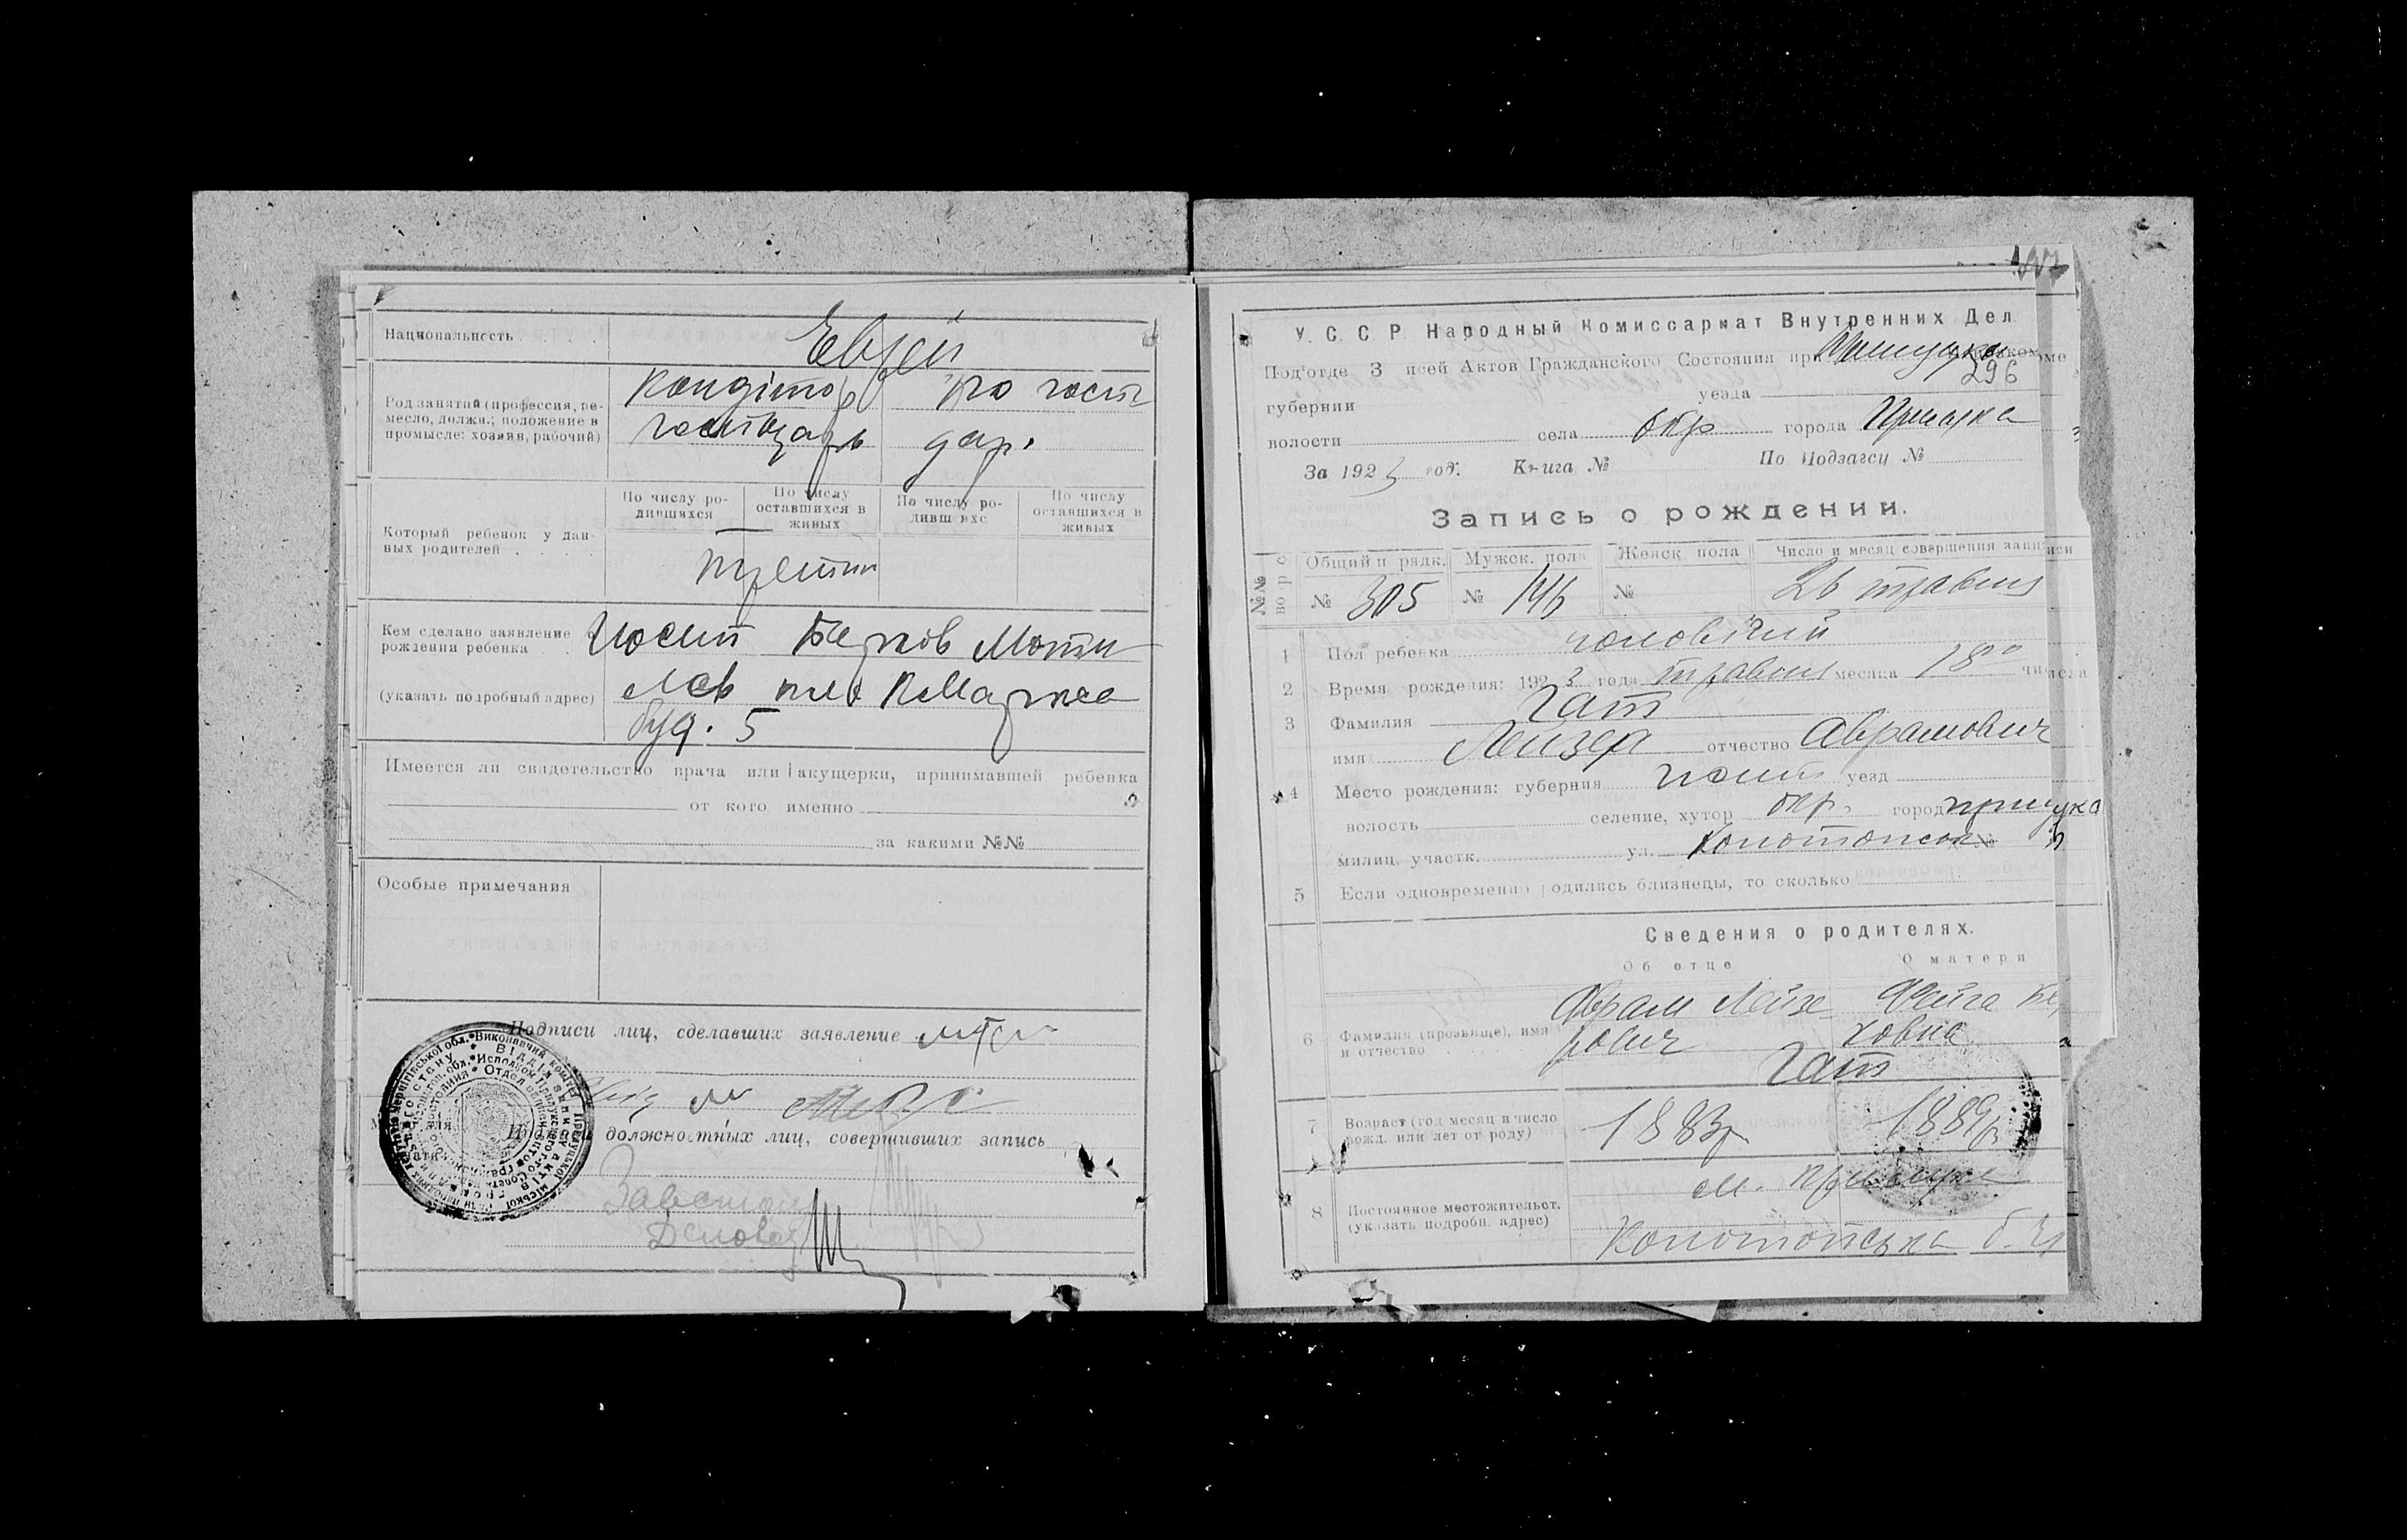 Национальность
Еврей
Род занятий (профессия, ре-
месло, должн.; положение в
промысле: хозяин, рабочий)
Кондітор
господарь
по госп
дар.
Который ребенок у дан-
ных родителей
По числу ро-
дившихся
По числу
оставшихся в
живых
По числу ро-
дивш хс
По числу
оставшихся в
живых
третій
Кем сделано заявление о
рождении ребенка
Иосип Берков Моти
лев К Маркса
(указать подробный адрес)
буд. 5
Имеется ли свидетельство врача или акушерки, принимавшей ребенка
от кого именно
за какими №№
Особые примечания
Подписи лиц, сделавших заявление
должностных лиц, совершивших запись
Завстол
Діловод
У. С. С. Р. Народный Комиссариат Внутренних Дел
Под'отде З исей Актов Гражданского Состояния при
296
губернии уезда
волости села окр города Прилука
За 1923 год. Книга № По Подзагсу №
Запись о рождении.
№№
Общий п рядк. Мужск. пола Женск. пола Число и месяц совершения записи
№ 305 № 146 № 26 травня
1 Пол ребенка чоловічий
2 Время рождения: 1923 года травня месяца 18го числа
3 Фамилия Гат
имя Лейзер отчество Аврамович
4 Место рождения: губерния уезд
волость селение, хутор окр. город Прилука
милиц. участк. ул. Конотопска №
5 Если одновременно родились близнецы, то сколько
Сведения о родителях.
Об отце О матери
6 Фамилия (прозвище), имя
и отчество
Аврам Лейзе
рович
Фейга Бе
ковна
Гат
7 Возраст (год месяц и число
рожд. или лет от роду)
1883р
1889р
8 Постоянное местожительст.
(указать подробн. адрес)
м. Прилука
Конотопська б.